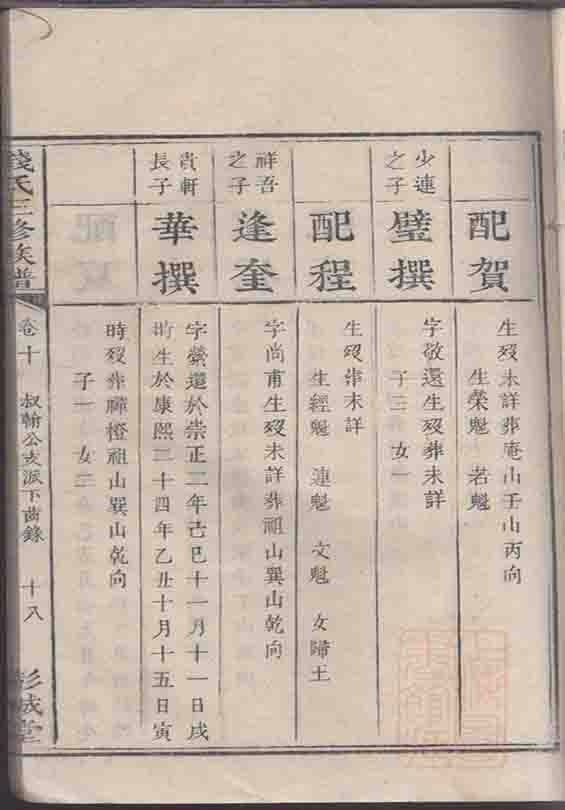 配賀
生歿未詳葬庵山壬山丙向
生榮魁 若魁
少連之子
璧撰
字敬還生歿葬未詳
子三 女一
配程
生歿葬未詳
生經魁 連魁 文魁 女歸王
祥吾之子
逢奎
字尚甫生歿未詳葬祖山巽山乾向
貴軒長子
華撰
字縈還於崇正二年己巳十一月十一日戌
時生於康熙二十四年乙丑十月十五日寅
時歿葬禪橙祖山巽山乾向
子一 女二
錢氏三修族譜
卷十
叔翰公支派下齒錄
十八
彭城堂